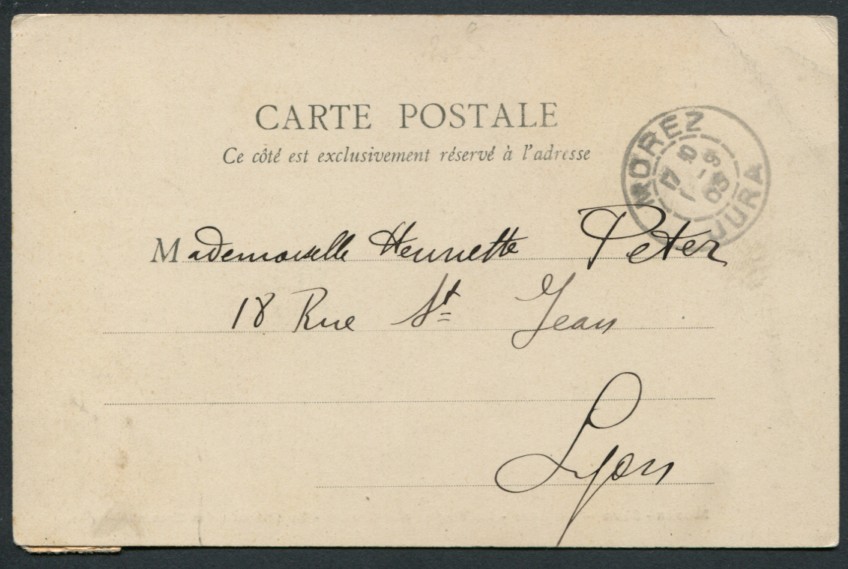 CARTE POSTALE
Ce côté est exclusivement réservé à l'adresse
MOREZ
JURA
Mademoiselle Henriette Peter
18 Rue St Jean
Lyon